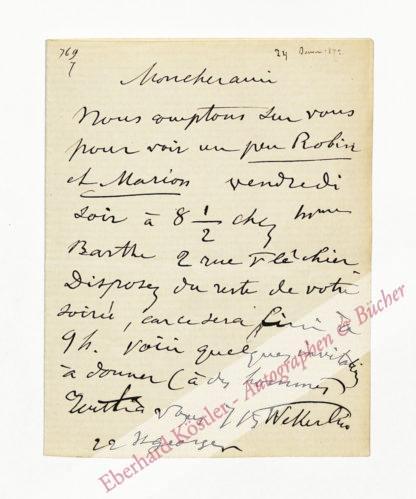 769
7
24
Mon cher ami
Nous comptons sur vous
pour voir un peu Robin
et Marion vendredi
soir à 8 1/2 chez Mme
Barthe 2 rue Fléchier
Disposez du reste de votre
soirée, car ce sera fini à
9h. voici quelques invitations
à donner (à des hommes)
à vous J B Wekerlin
22 St georges
Eberhard Köstler - Autographen & Bücher